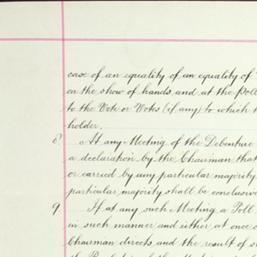 case of an equality of an equality of
on the show of hands and at the Poll
to the Vote or Votes (if any) to which
holder.
8 At any Meeting of the Debenture
a declaration by the Chairman that
or carried by any particular majority
particular majority shall be conclusive
9 If at any such Meeting a Poll
in such manner and either at once o
Chairman directs and the result of s